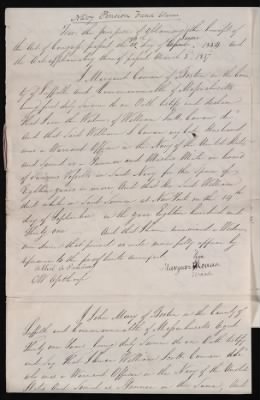 Navy Pension Fund
For the purpose of obtaining the benefit of
the Act of Congress passed the of 1834 and
the Act of passed March 3. 1837
I Margaret Cowan of Boston in the Coun
ty of Suffolk and Commonwealth of Massachusetts
being first duly Sworn on Oath testify and declare
that I am the Widow of William Cowan
And that said William Cowan my late Husband
was a Warrant Officer in the Navy of the United States
and Served as a Gunner and Master Mate on board
of various Vessels in said Navy for the space of
years or more And that the said William
died while in said Service at New York on the 14th
day of September in the year Eighteen hundred and
Thirty one And that I have remained a Widow
since that period as will more fully appear by
reference to the proof annexed
her
Margaret Cowan
mark
I John of Boston in the County of
Suffolk and Commonwealth of Massachusetts Aged
thirty one Years being duly Sworn do on Oath testify
and say that I knew William Scott Cowan
who was a Warrant Officer in the Navy of the United
States And served as Gunner in the same, And